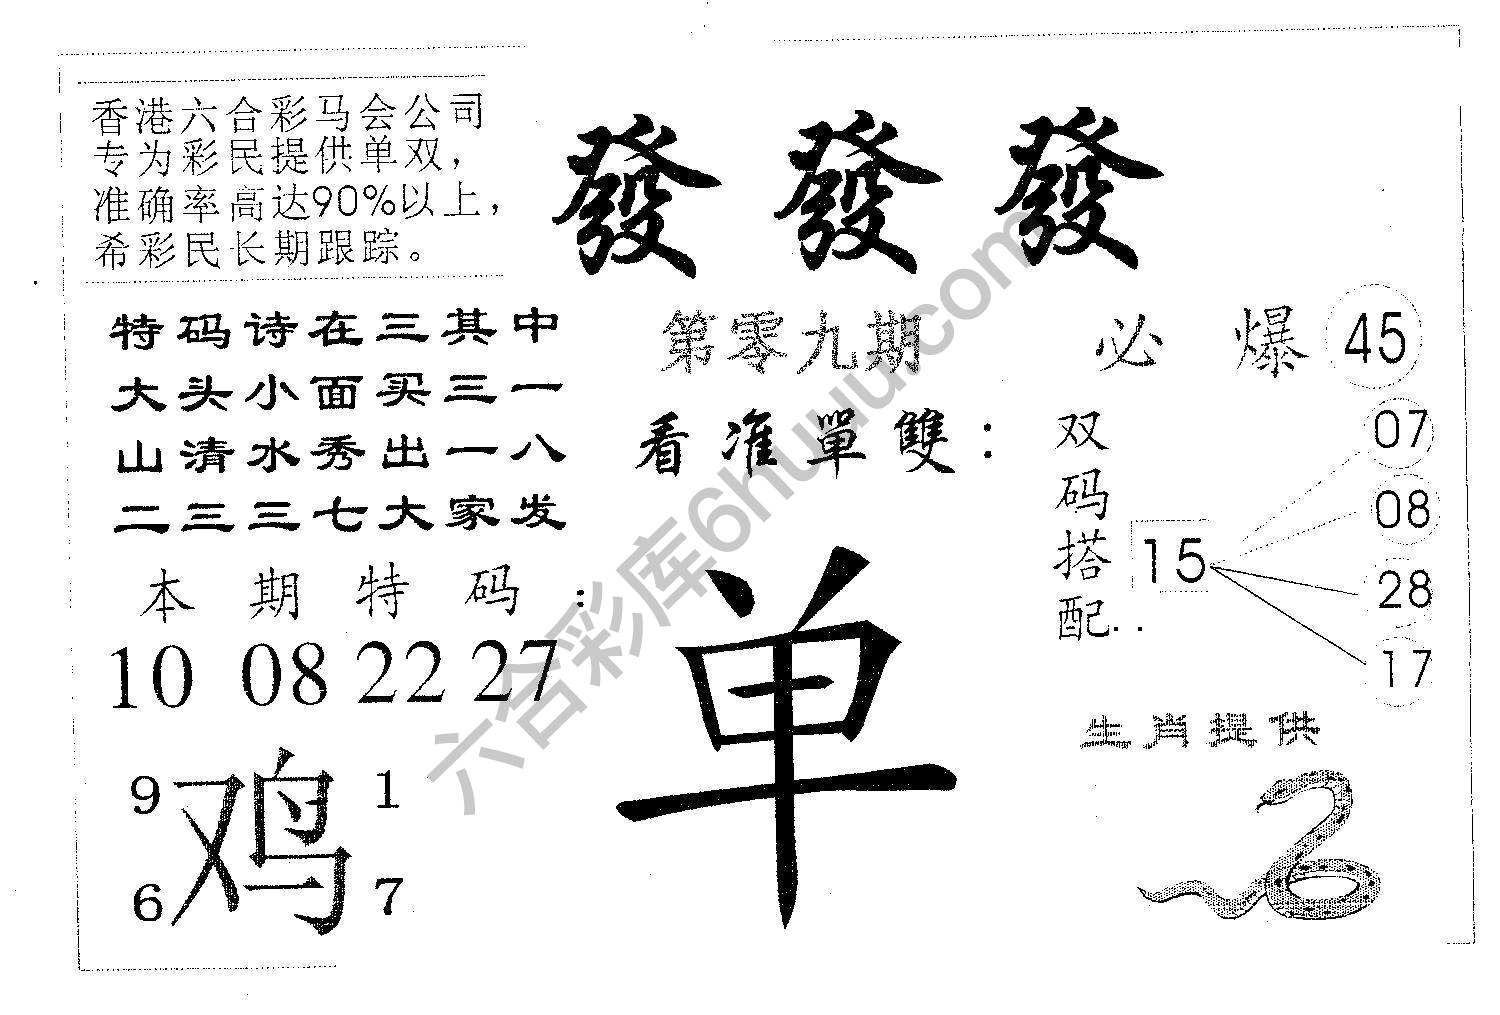 香港六合彩马会公司
专为彩民提供单双，
准确率高达90%以上，
希彩民长期跟踪。
發 發 發
特码诗在三其中
大头小面买三一
山清水秀出一八
二三三七大家发
第零九期
必 爆 45
看准單雙：
双码搭配..
15
07
08
28
17
本期特码：
10 08 22 27
单
9 1
鸡
6 7
生肖提供
六合彩库6huuu.com